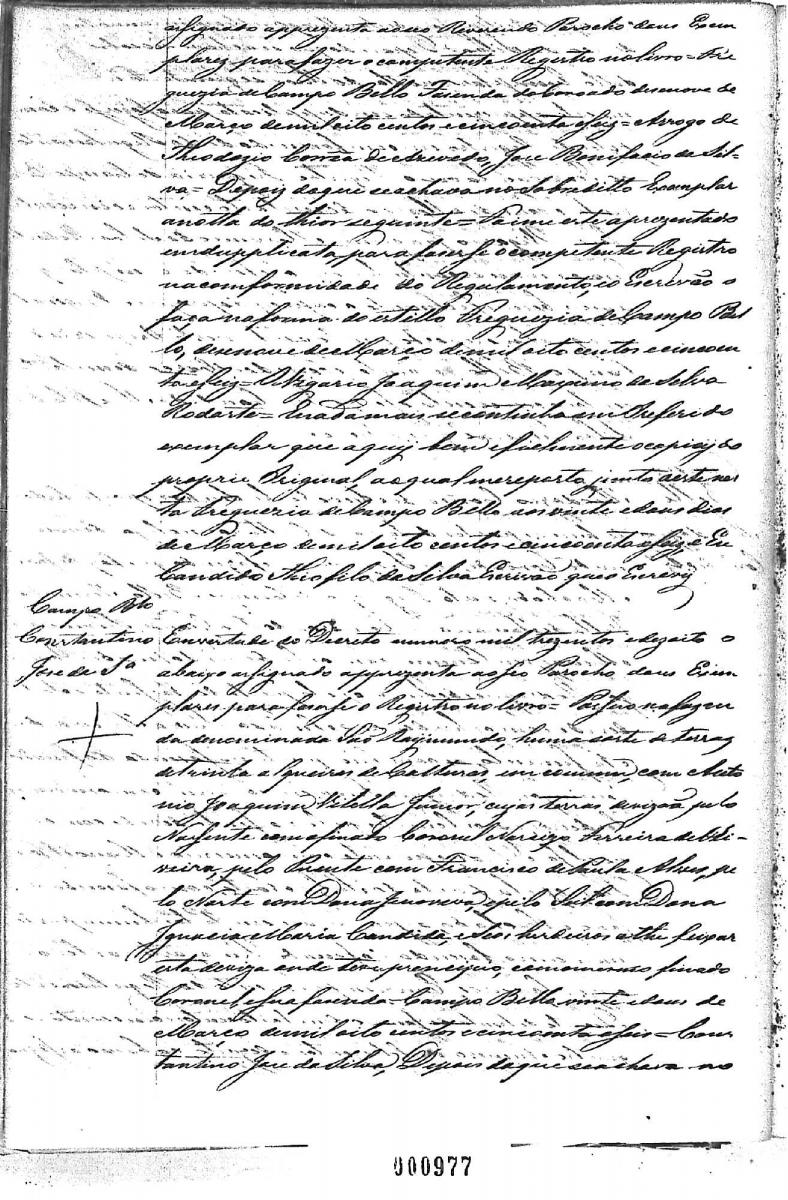 assignado appresenta ao seo Reverendo Parocho dous Exem
plares para fazer o competente Registro no livro = Fre
guezia de Campo Bello Fasenda do Coroado desenove de
Março de mil oito centos e cincoenta e seiz = Arrogo de
Theodozio Corrêa de Azevedo, Jose Bonifacio da Sil-
va = Depoiz do que se achava no Sobreditto Exemplar
a notta do thior seguinte = Foi me este aprezentado
em dupplicata, para faser se o competente Registro
na comformidade do Regulamento, e o Escrivão o
faça na forma do estillo Freguezia de Campo Bel
lo, desenove de Março de mil oito centos e cincoen
ta e seiz = O Vigario Joaquim Maximo da Silva
Rodarte = E nada mais se continha em o Referido
exemplar que aqui bem e fielmente o copiey do
proprio Original ao qual me reporto, junto a este nes
ta Freguezia de Campo Bello aos vinte e dous dias
de Março de mil oito centos e cincoenta e seiz e Eu
Candido Thiofilo da Silva Escrivão que o Escrevy
Campo Blo
Constantino
Jose da Sa
Em vertude do Decreto numero mil trezentos e dezoito o
abaixo assignado apprezenta ao seo Parocho dous Exem
plares para faser se o Registro no livro = Possuo na fazen
da denominada São Raymundo, huma sorte de terras
de trinta alqueires de Culturas, em commum, com Anto
nio Joaquim Vilella Junior, cujas terras devizão, pelo
Nascente com o finado Coronel Narcizo Ferreira de Oli-
veira, pelo Puente com Francisco de Paula Alves, pe
lo Norte com Dona Jenoveva, e pelo Sul com Dona
Ignacia Maria Candida, e seos herdeiros athe feixar
esta deviza onde teve principio, com o mesmo finado
Coronel, e sua fazenda = Campo Bello vinte e dous de
Março de mil oito centos e cincoenta e seis = Cons
tantino Jose da Silva, Depois do que se achava no
000977